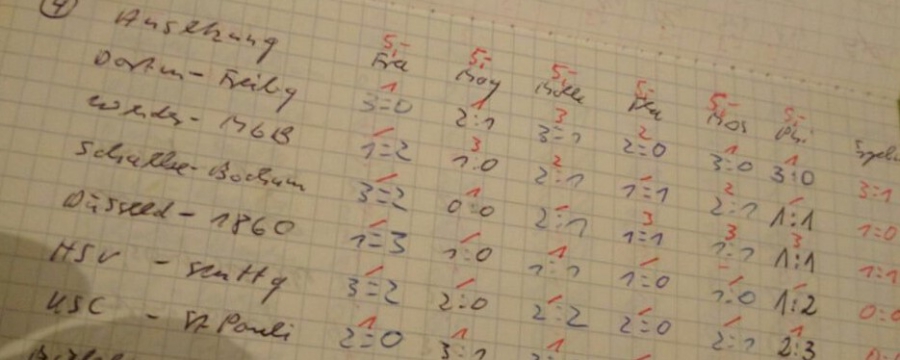 4
5,- 5,- 5,- 5,- 5,- 5,-
Fra May Mos Phi
1 1 3 2 1 1
Dortm - Freibg 3:0 2:1 3:1 2:0 3:0 3:0 3:1
- 3 2 - 2 -
Werder - MGB 1:2 1:0 2:1 1:1 2:1 1:1 1:0
- 1 - 3 3 3
Schalke - Bochum 3:2 0:0 2:1 1:1 1:1 1:1 1:1
- - 1 - - -
Düsseld - 1860 1:3 1:0 1:1 1:0 1:0 1:2 0:0
- - - - - -
HSV - 3:2 2:0 2:2 2:0 2:1 2:3
1 1
KSC - St Pauli 2:0 3:1